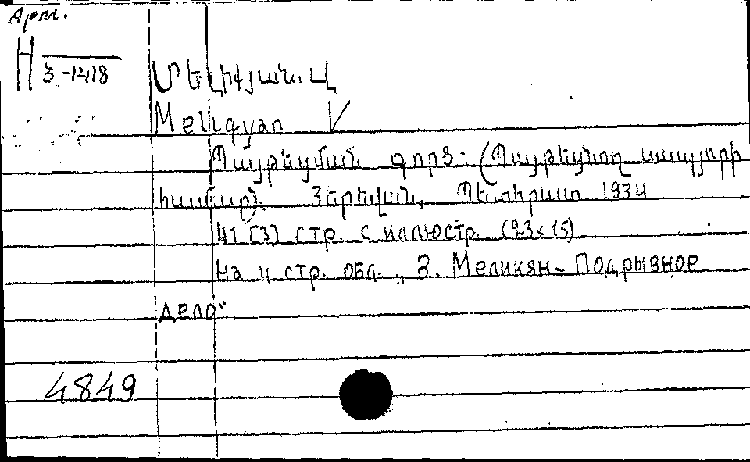 Арм.
H
3-1418
Մելիքյան. Զ
Meliqyan V
Պայթեցման գործ- (Պայթեցնող
համար). Յերևան, Պետհրատ 1934
41 [3] стр. с иллюстр. (23×15)
На 4 стр. обл. „З. Меликян- Подрывное
дело"
4849